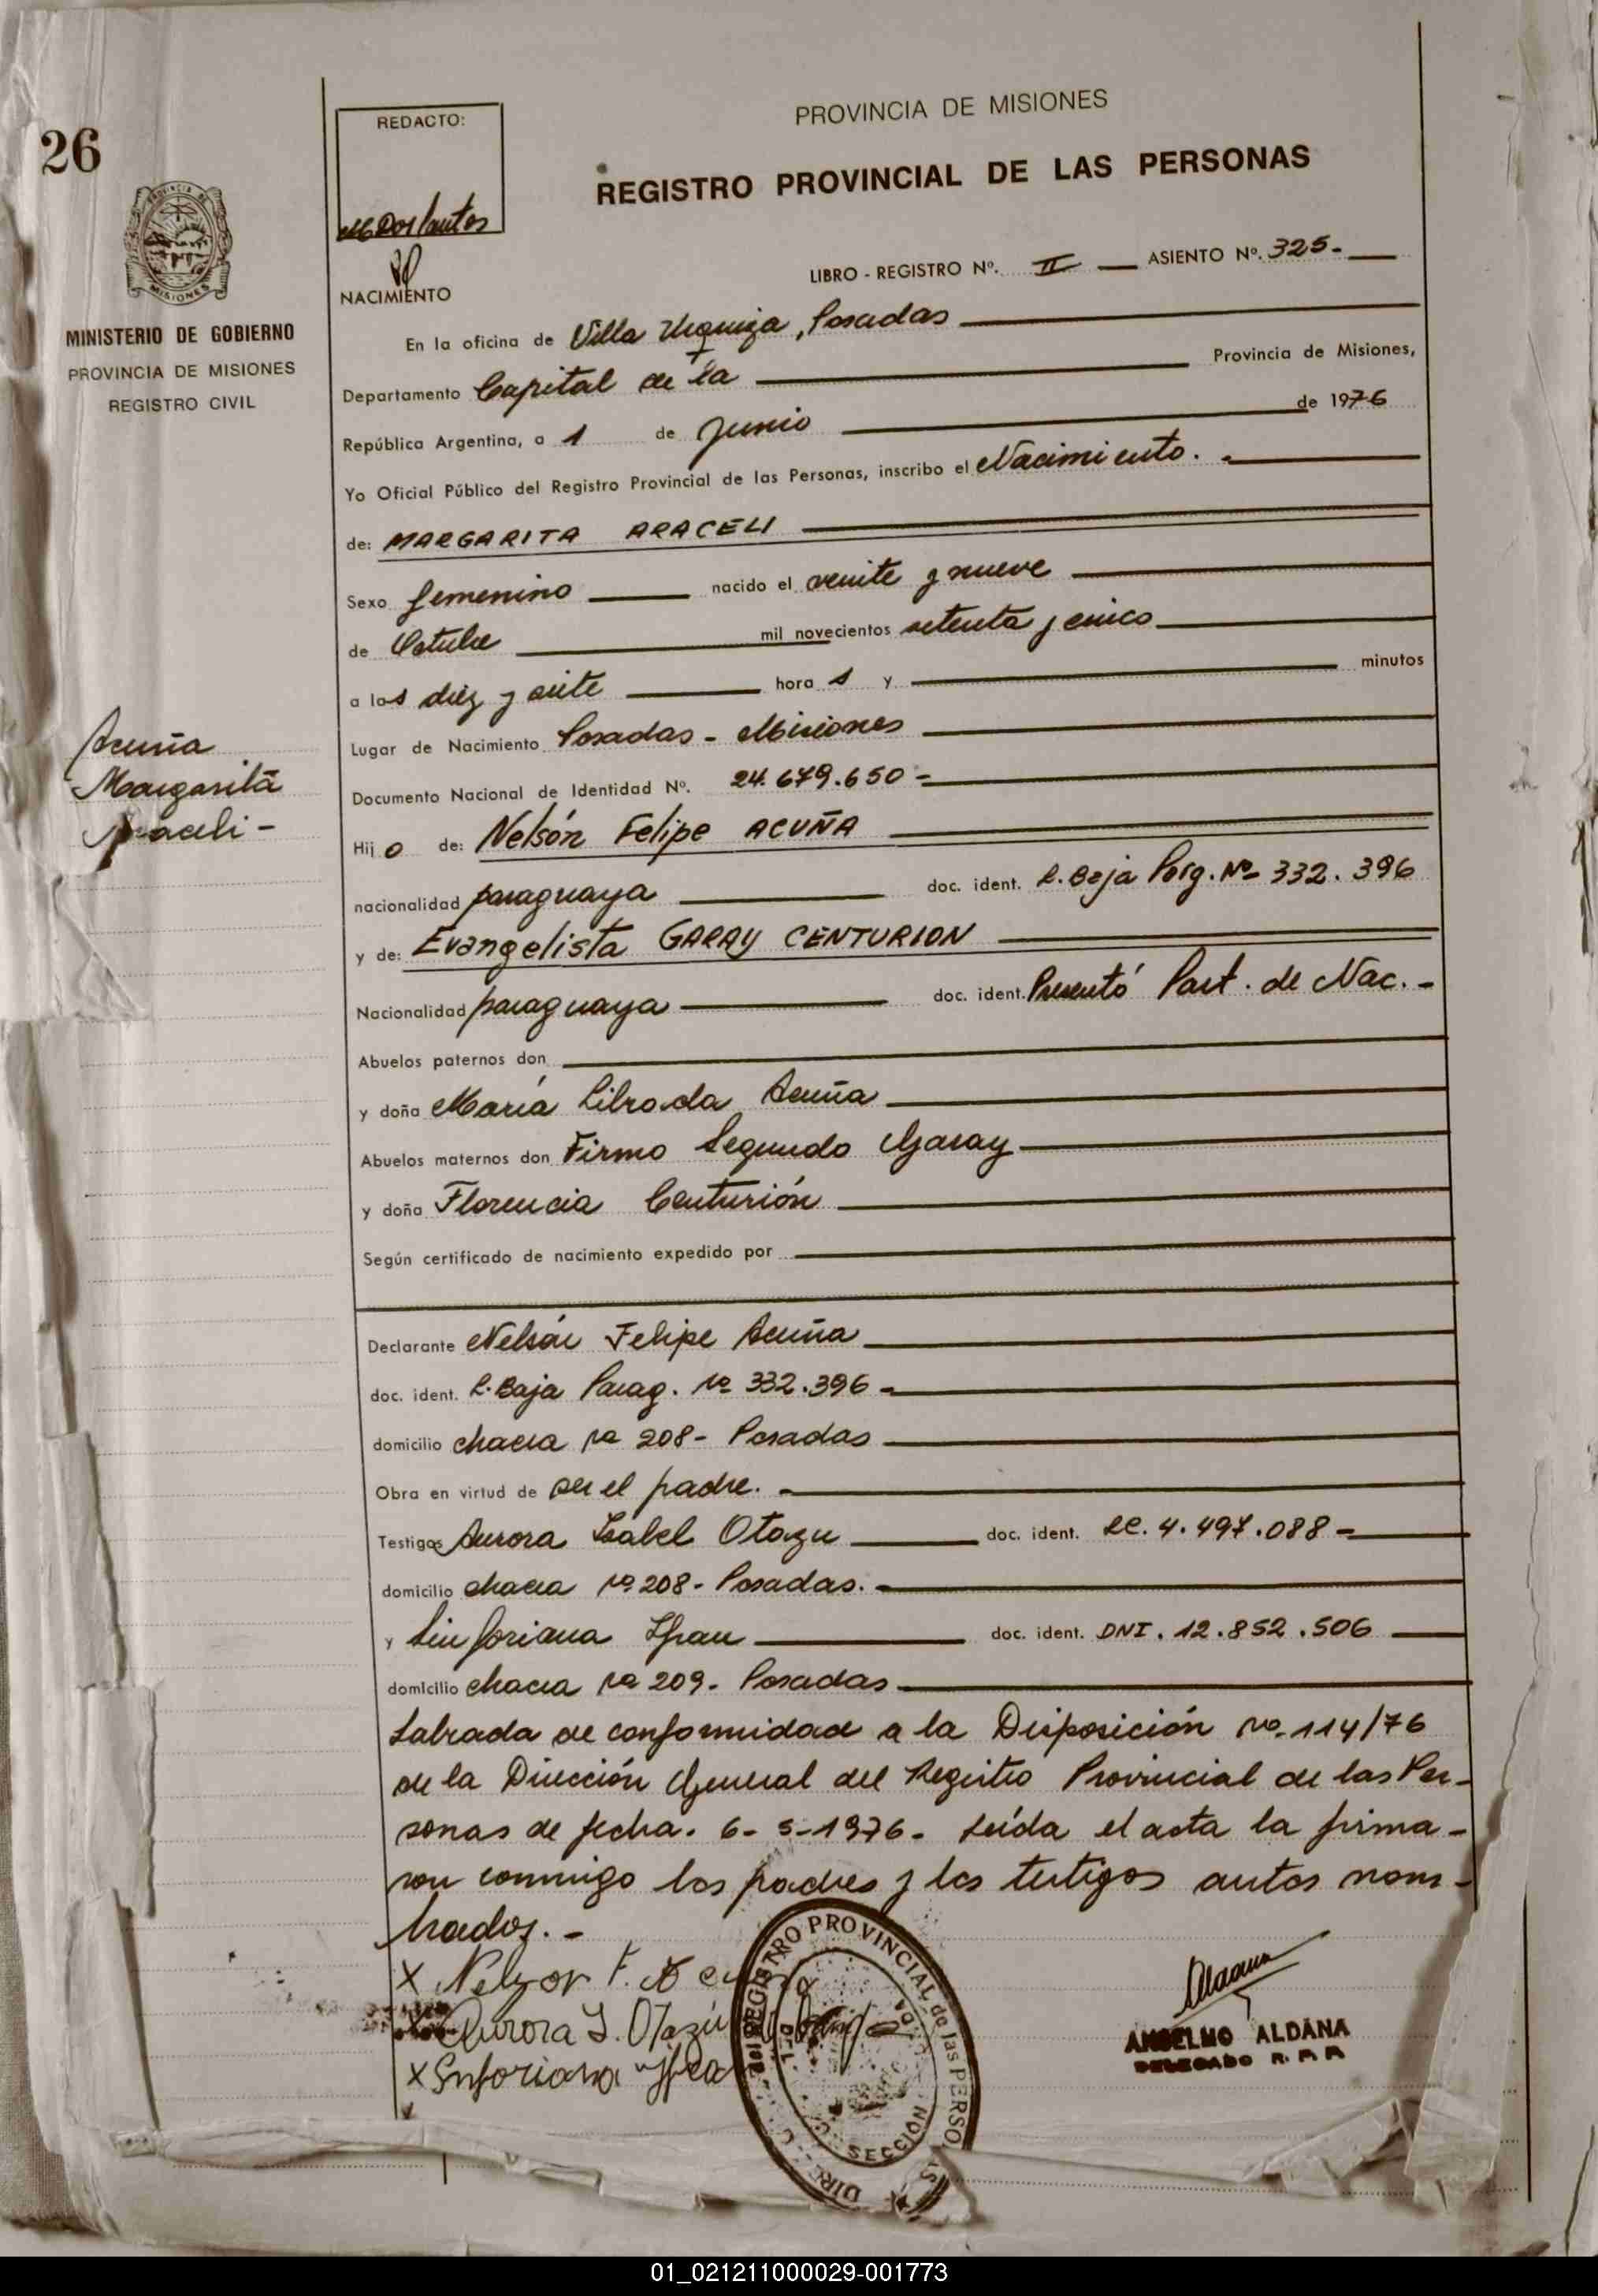 26
REDACTO:
M Dos Santos
PROVINCIA DE MISIONES
REGISTRO PROVINCIAL DE LAS PERSONAS
MISIONES
MINISTERIO DE GOBIERNO
PROVINCIA DE MISIONES
REGISTRO CIVIL
LIBRO - REGISTRO Nº. II ASIENTO Nº. 325-
NACIMIENTO
En la oficina de Villa Urquiza, Posadas
Departamento Capital de la Provincia de Misiones,
República Argentina, a 1 de Junio de 1976
Yo Oficial Público del Registro Provincial de las Personas, inscribo el Nacimiento. -
de: MARGARITA ARACELI
Sexo femenino nacido el veinte y nueve
de Octubre mil novecientos setenta y cinco
a las diez y siete hora s y minutos
Lugar de Nacimiento Posadas - Misiones
Documento Nacional de Identidad Nº. 24.679.650 -
Acuña
Margarita
Araceli -
Hij o de: Nelsón Felipe ACUÑA
nacionalidad paraguaya doc. ident. L. Baja Parg. Nº 332.396
y de: Evangelista GARAY CENTURION
Nacionalidad paraguaya doc. ident. Presentó Part. de Nac. -
Abuelos paternos don
y doña María Librada Acuña
Abuelos maternos don Firmo Segundo Garay
y doña Florencia Centurión
Según certificado de nacimiento expedido por
Declarante Nelsón Felipe Acuña
doc. ident. L. Baja Parag. Nº 332.396 -
domicilio chacra Nº 208 - Posadas
Obra en virtud de ser el padre. -
Testigos Aurora Isabel Otazu doc. ident. LC. 4.497.088 -
domicilio chacra Nº 208 - Posadas. -
y Sinforiana Ifran doc. ident. DNI. 12.852.506
domicilio chacra Nº 209 - Posadas
Labrada de conformidad a la Disposición Nº 114/76
de la Dirección General del Registro Provincial de las Per-
sonas de fecha. 6-5-1976. Leída el acta la firma-
ron conmigo los padres y los testigos antes nom-
brados. -
X Nelzon F. Acuña
X Aurora I. Otazú
X Sinforiana Ifran
REGISTRO PROVINCIAL de las PERSONAS
SECCION
ANSELMO ALDANA
DELEGADO R. P. P.
01_021211000029-001773